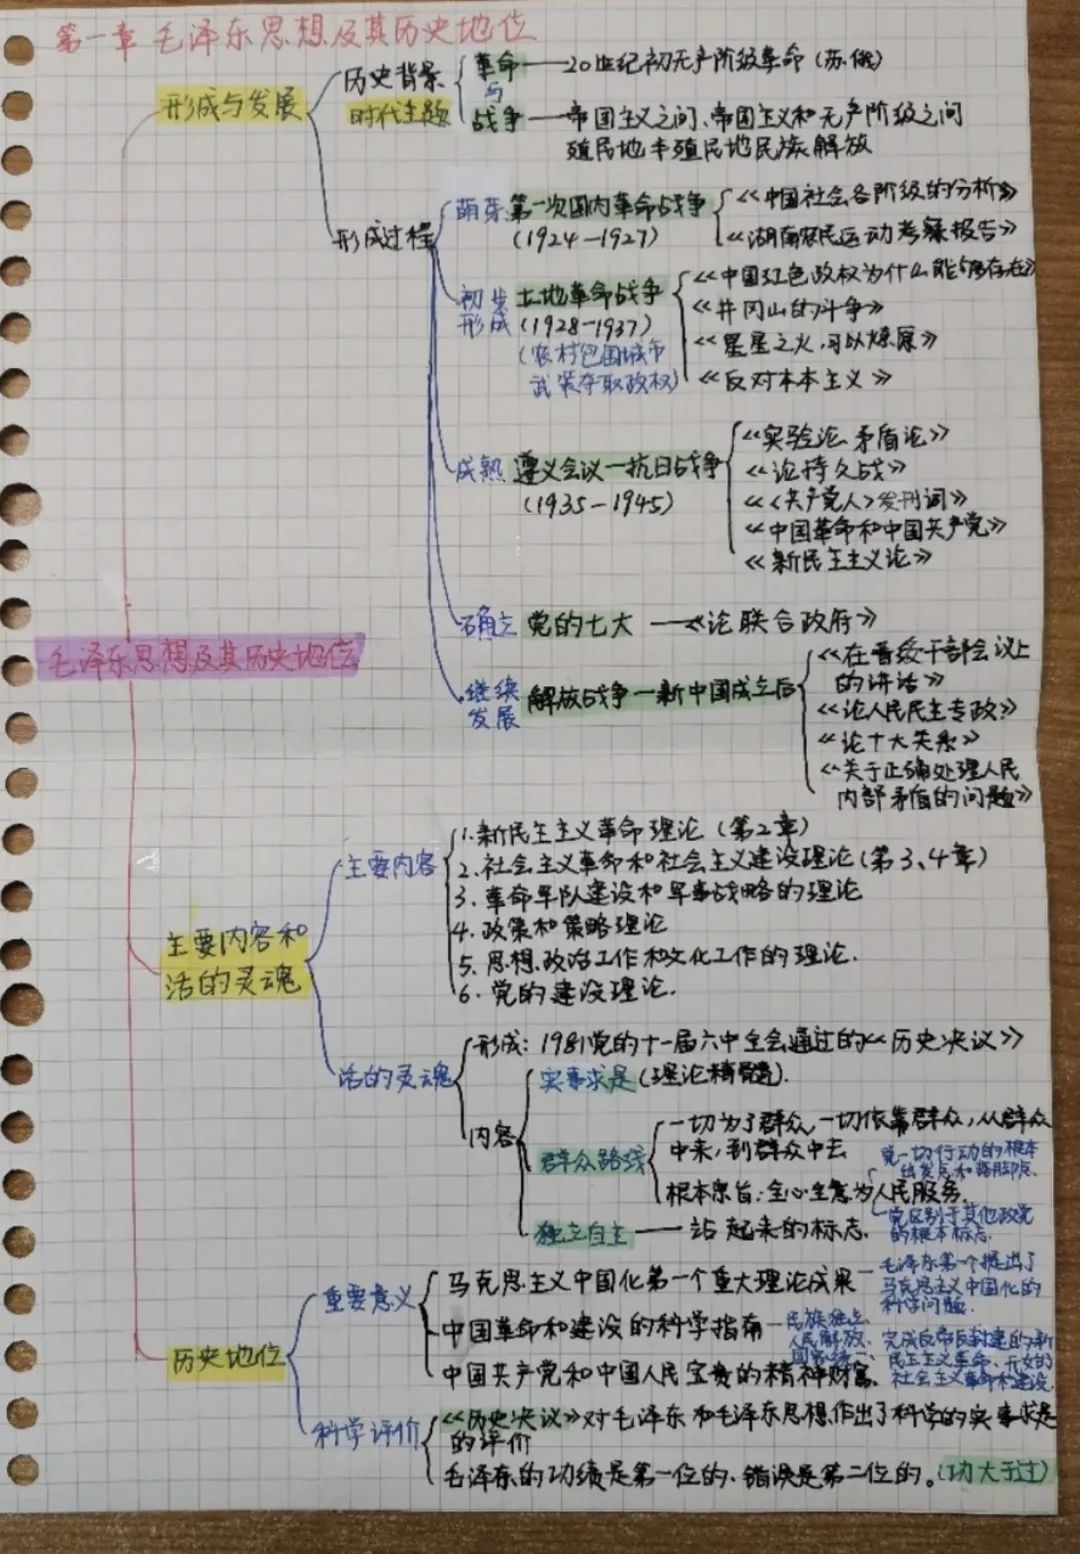 第一章 毛泽东思想及其历史地位
毛泽东思想及其历史地位
形成与发展
历史背景
时代主题
革命——20世纪初无产阶级革命(苏.俄)
与
战争——帝国主义之间、帝国主义和无产阶级之间
殖民地半殖民地民族解放
形成过程
萌芽 第一次国内革命战争
(1924—1927)
《中国社会各阶级的分析》
《湖南农民运动考察报告》
初步 土地革命战争
形成 (1928—1937)
(农村包围城市
武装夺取政权)
《中国红色政权为什么能够存在》
《井冈山的斗争》
《星星之火,可以燎原》
《反对本本主义》
成熟 遵义会议—抗日战争
(1935—1945)
《实验论 矛盾论》
《论持久战》
《〈共产党人〉发刊词》
《中国革命和中国共产党》
《新民主主义论》
确立 党的七大——《论联合政府》
继续 解放战争—新中国成立后
发展
《在晋绥干部会议上
的讲话》
《论人民民主专政》
《论十大关系》
《关于正确处理人民
内部矛盾的问题》
主要内容和
活的灵魂
主要内容
1.新民主主义革命理论(第2章)
2.社会主义革命和社会主义建设理论(第3、4章)
3.革命军队建设和军事战略的理论
4.政策和策略理论
5.思想政治工作和文化工作的理论.
6.党的建设理论.
活的灵魂
形成:1981党的十一届六中全会通过的《历史决议》
内容
实事求是(理论精髓).
群众路线
一切为了群众,一切依靠群众,从群众
中来,到群众中去
根本宗旨:全心全意为人民服务.
党一切行动的根本
出发点和落脚点.
党区别于其他政党
的根本标志.
独立自主——站起来的标志.
历史地位
重要意义
马克思主义中国化第一个重大理论成果—毛泽东第一个提出了
马克思主义中国化的
科学问题.
中国革命和建设的科学指南—民族独立、
人民解放、
国家统一、
完成反帝反封建的新
民主主义革命、开始的
社会主义革命和建设
中国共产党和中国人民宝贵的精神财富.
科学评价
《历史决议》对毛泽东和毛泽东思想作出了科学的实事求是
的评价
毛泽东的功绩是第一位的、错误是第二位的。(功大于过)